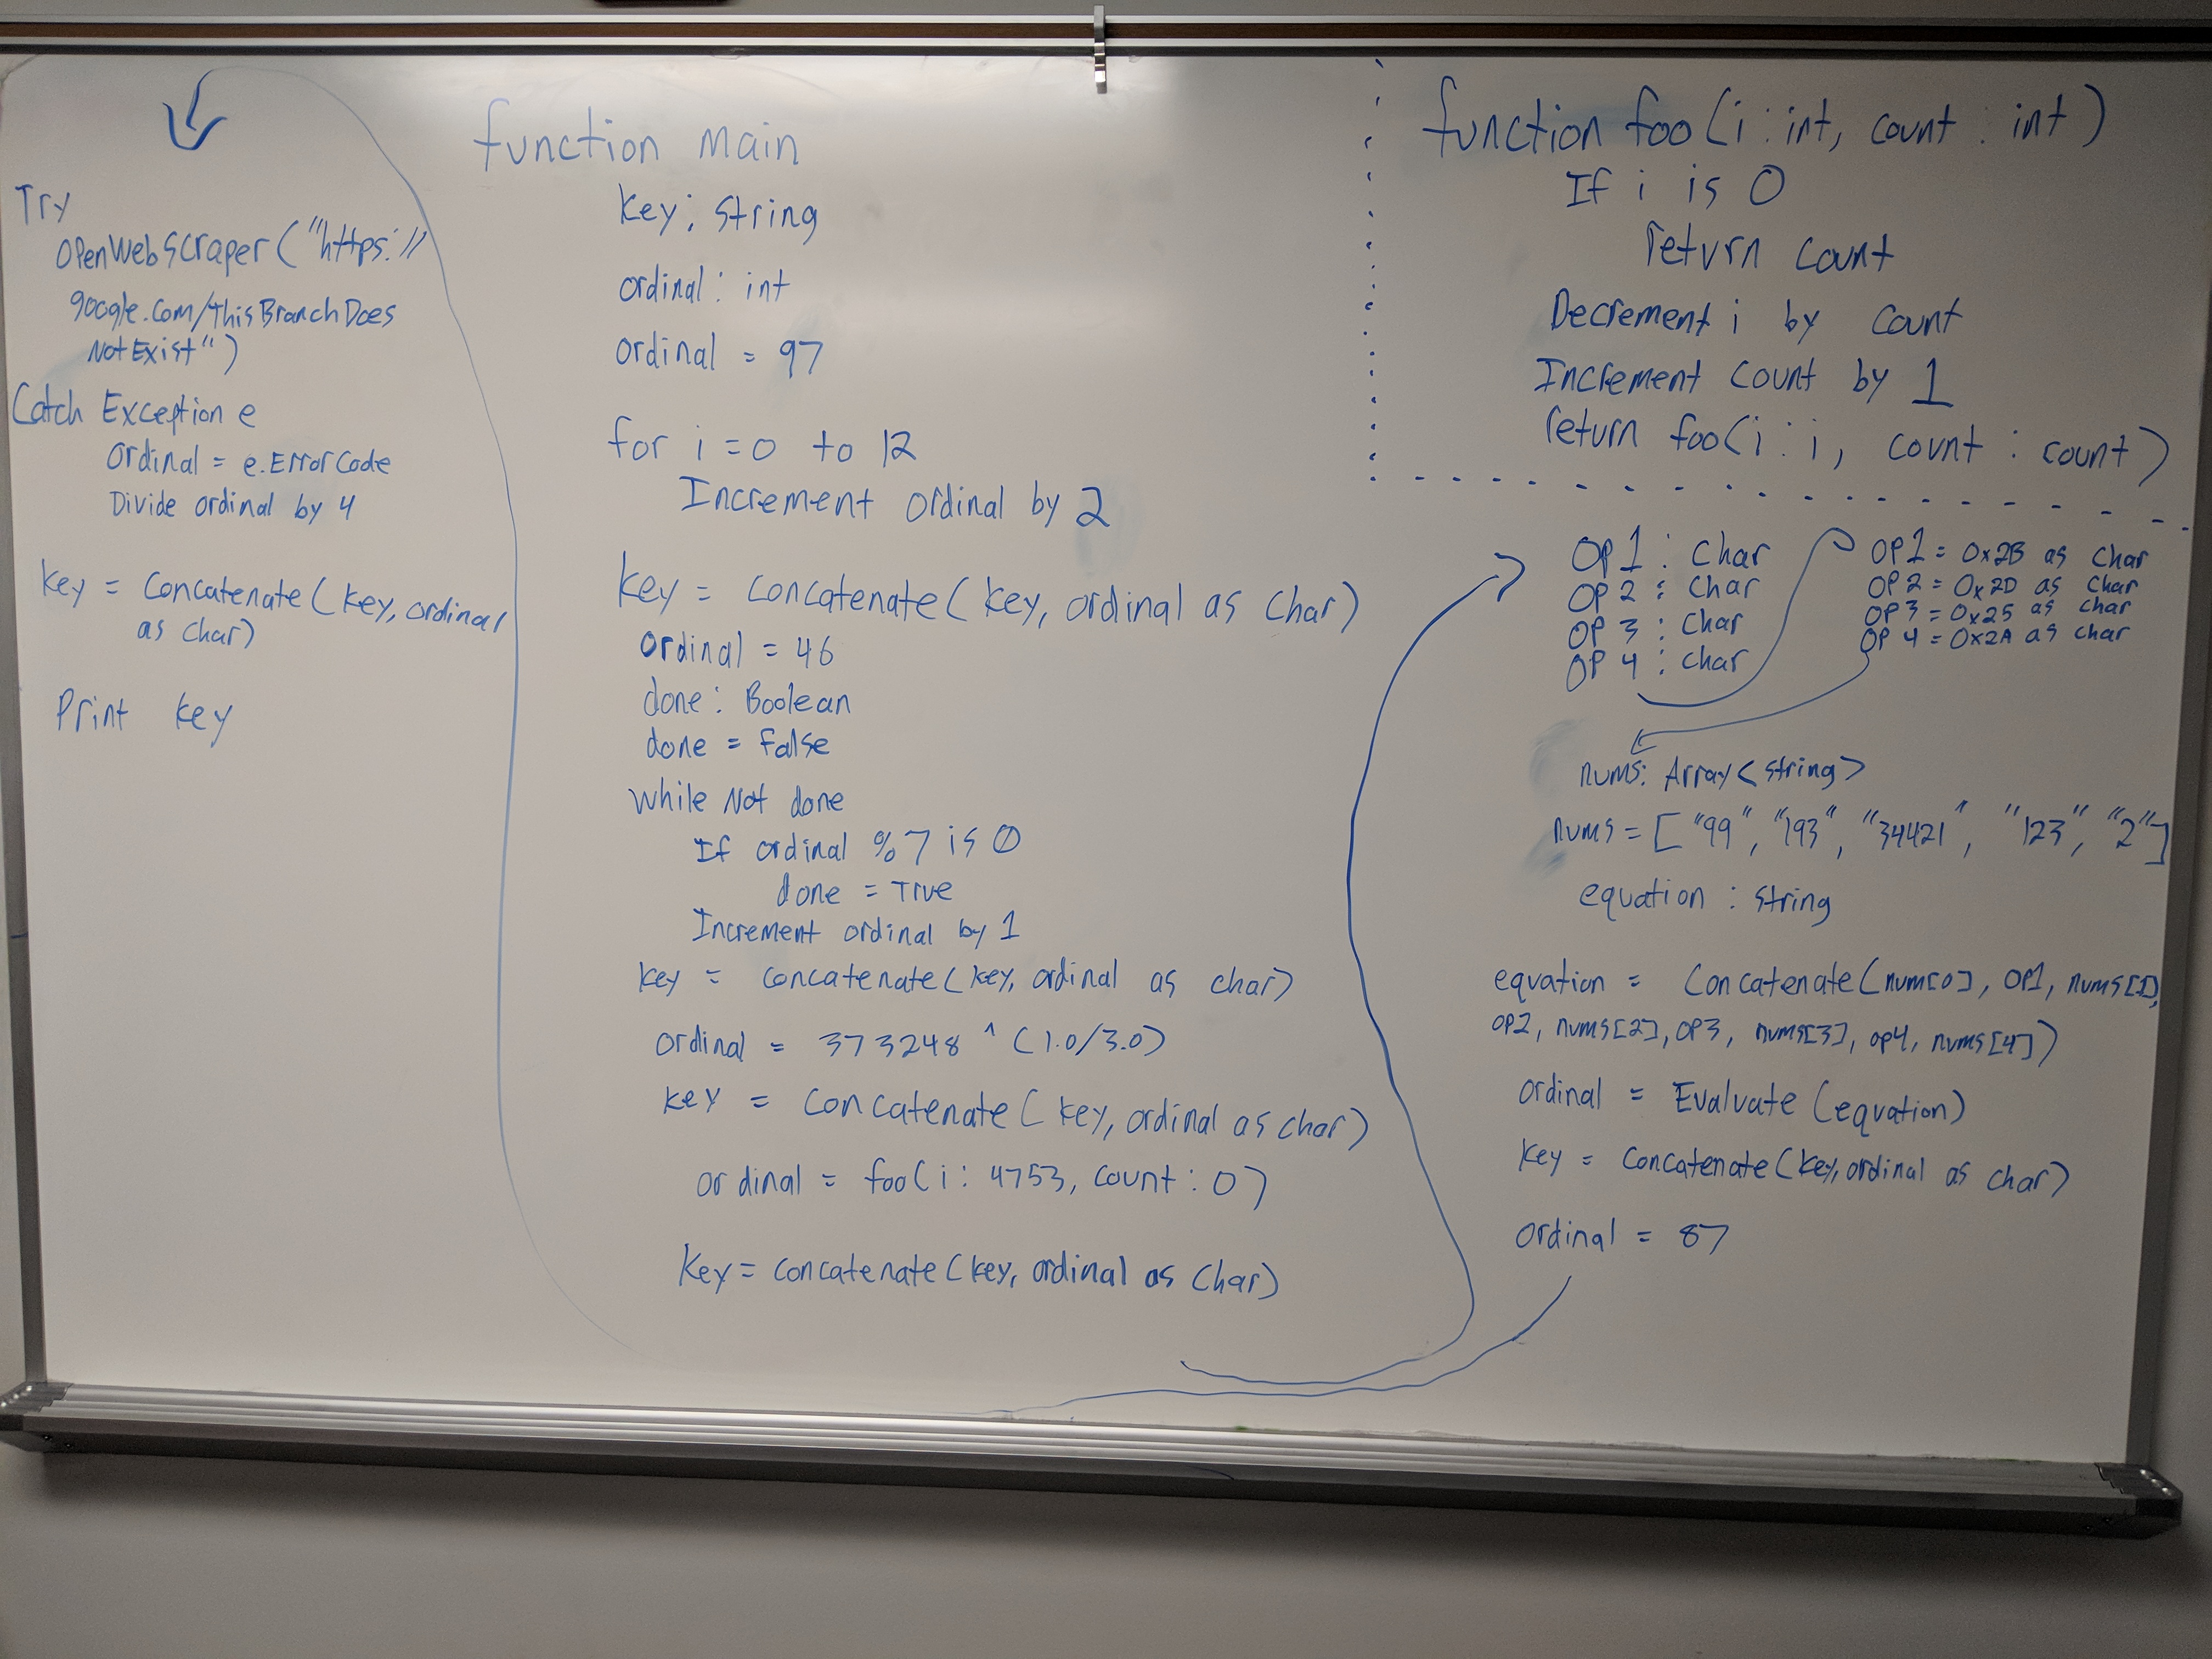 function main
key: string
ordinal: int
ordinal = 97
for i = 0 to 12
Increment ordinal by 2
key = concatenate(key, ordinal as char)
ordinal = 46
done: Boolean
done = False
while Not done
If ordinal % 7 is 0
done = True
Increment ordinal by 1
key = concatenate(key, ordinal as char)
ordinal = 373248 ^ (1.0/3.0)
key = concatenate(key, ordinal as char)
ordinal = foo(i: 4753, count: 0)
Key = concatenate(key, ordinal as char)
function foo(i: int, count: int)
If i is 0
return count
Decrement i by count
Increment count by 1
return foo(i: i, count: count)
OP1: Char
OP2: Char
OP3: Char
OP4: Char
OP1 = 0x2B as char
OP2 = 0x2D as char
OP3 = 0x25 as char
OP4 = 0x2A as char
nums: Array<string>
nums = ["99", "193", "34421", "123", "2"]
equation: string
equation = Concatenate(num[0], OP1, nums[1],
OP2, nums[2], OP3, nums[3], op4, nums[4])
ordinal = Evaluate(equation)
key = concatenate(key, ordinal as char)
ordinal = 87
Try
OpenWebScraper("https://
google.com/ThisBranchDoes
NotExist")
Catch Exception e
Ordinal = e.ErrorCode
Divide ordinal by 4
key = Concatenate(key, ordinal
as char)
Print key